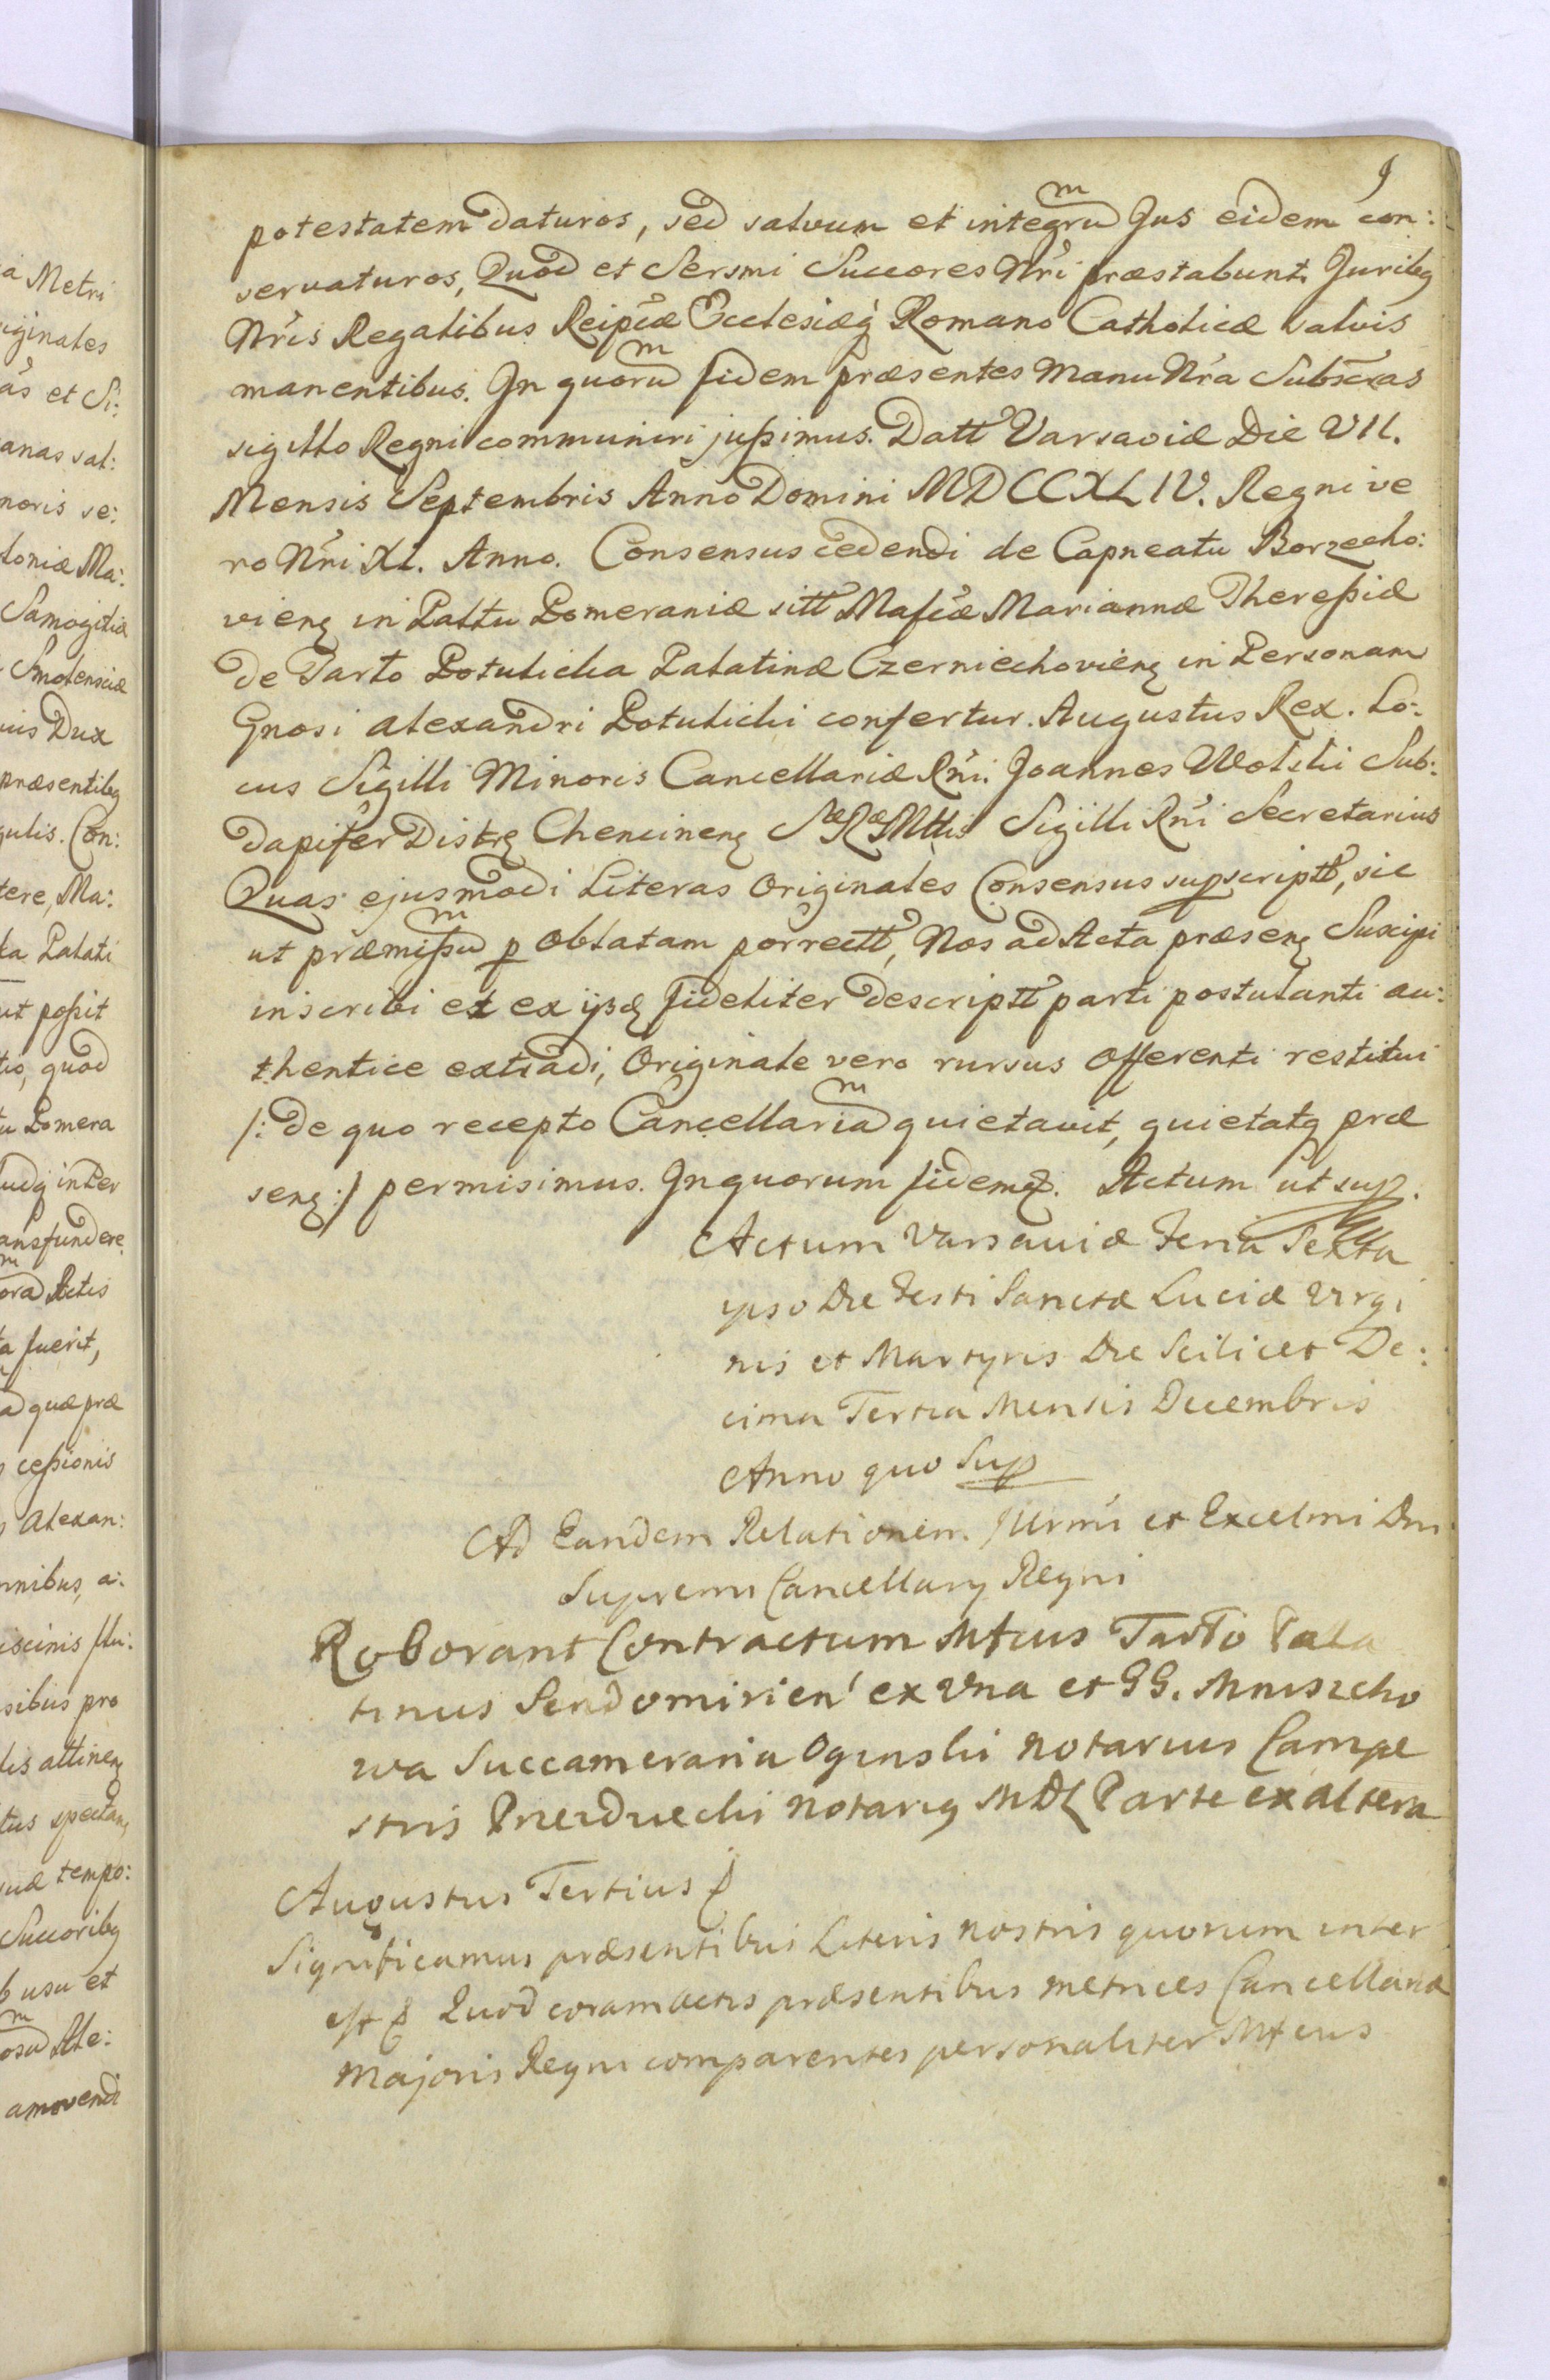 9
potestatem daturos, sed salvum et integrum Jus eidem con:
servaturos, Quod et Sersmi Succores Nri præstabunt. Juribq
Nris Regalibus Reipcæ Ecclesiæq Romano Catholicæ salvis
manentibus. In quorum fidem præsentes Manu Nra Subscras
sigillo Regni communiri jussimus. Datt Varsaviæ Die VII.
Mensis Septembris Anno Domini MDCCXLIV. Regni ve
ro Nri XI. Anno. Consensus cedendi de Capneatu Borzecho:
vienę in Pattu Pomeraniæ sitt Mafcæ Mariannæ Theressiæ
de Tarło Potulicka Palatinæ Czerniechovienę in Personam
Gnosi Alexandri Potulicki confertur. Augustus Rex. Lo:
cus Sigilli Minoris Cancellariæ Rni. Joannes Wolski Sub:
dapifer Distrę Chencinenę SæRæMttis Sigilli Rni Secretarius
Quas ejusmodi Literas Originales Consensus supscriptt, sic
ut præmissum p Oblatam porrectt, Nos ad Acta præsenę Suscipi
inscribi et ex ijsdę fideliter descriptt parti postulanti au:
thentice extradi, Originale vero rursus Offerenti restitui
/: de quo recepto Cancellariam quietavit, quietatq præ
senę :/ permisimus. In quorum fidem &. Actum ut sup.
Actum Varsaviæ Feria Sexta
ipso Die Festi Sanctæ Luciæ Virgi
nis et Martyris Die Scilicet De:
cima Tertia Mensis Decembris
Anno quo Sup
Ad Eandem Relationem Illrmi et Excelmi Dni
Supremi Cancellarij Regni
Roborant Contractum Mfcus Tarło Pala
tinus Sendomirien' ex Una et GG. Mniszcho
wa Succameraria Oginski Notarius Campe
stris Przezdziecki Notariq MDL Parte ex altera
Augustus Tertius &
Significamus præsentibus Literis nostris quorum inter
est & Quod coram Actis præsentibus metrices Cancellariæ
Majoris Regni comparentes personaliter Mfcus